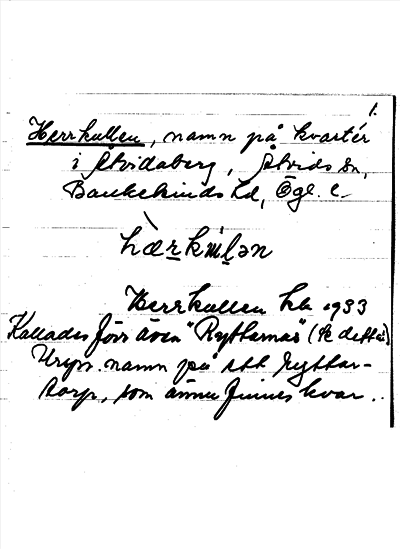 1.
Herrkullen, namn på kvartér
i Åtvidaberg, Åtvids sn,
Bankekinds hd, Ögl. l.
Herrkullen hb 1933
Kallades förr även "Ryttarnas" (se detta)
Urspr. namn på ett ryttar-
torp, som ännu finnes kvar..